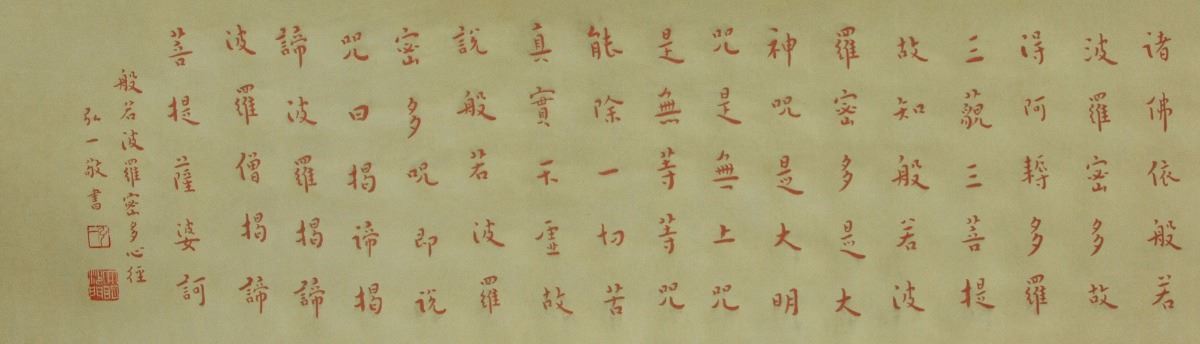 諸佛依般若
波羅密多故
得阿耨多羅
三藐三菩提
故知般若波
羅密多是大
神咒是大明
咒是無上咒
是無等等咒
能除一切苦
真實不虛故
說般若波羅
密多咒即說
咒曰揭諦揭
諦波羅揭諦
波羅僧揭諦
菩提薩婆訶
般若波羅密多心經
弘一敬書